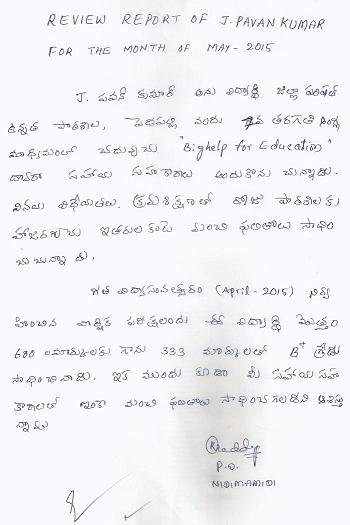 REVIEW REPORT OF J. PAVAN KUMAR
FOR THE MONTH OF MAY - 2015
J. పవన్ కుమార్ అను విద్యార్థి జిల్లా పరిషత్
ఉన్నత పాఠశాల, నందు తరగతి
మాధ్యమంలో చదువుచు "Bighelp for Education"
ద్వారా సహాయ సహకారాలు అందుకొను చున్నాడు.
వినయ విధేయతలు, క్రమశిక్షణతో రోజు పాఠశాలకు
హాజరగుచు ఇతరులకంటె మంచి ఫలితాలు సాధిం
చుచున్నాడు.
గత విద్యాసంవత్సరం (April - 2015) నిర్వ
హించిన వార్షిక పరీక్షలందు ఈ విద్యార్థి మొత్తం
600 మార్కులకు గాను 333 మార్కులతో B+ గ్రేడు
సాధించినాడు. ఇక ముందు కూడా మీ సహాయ సహ
కారాలతో ఇంకా మంచి ఫలితాలు సాధించగలడని ఆశిస్తు
న్నాము
P.O.
NIDIMAMIDI